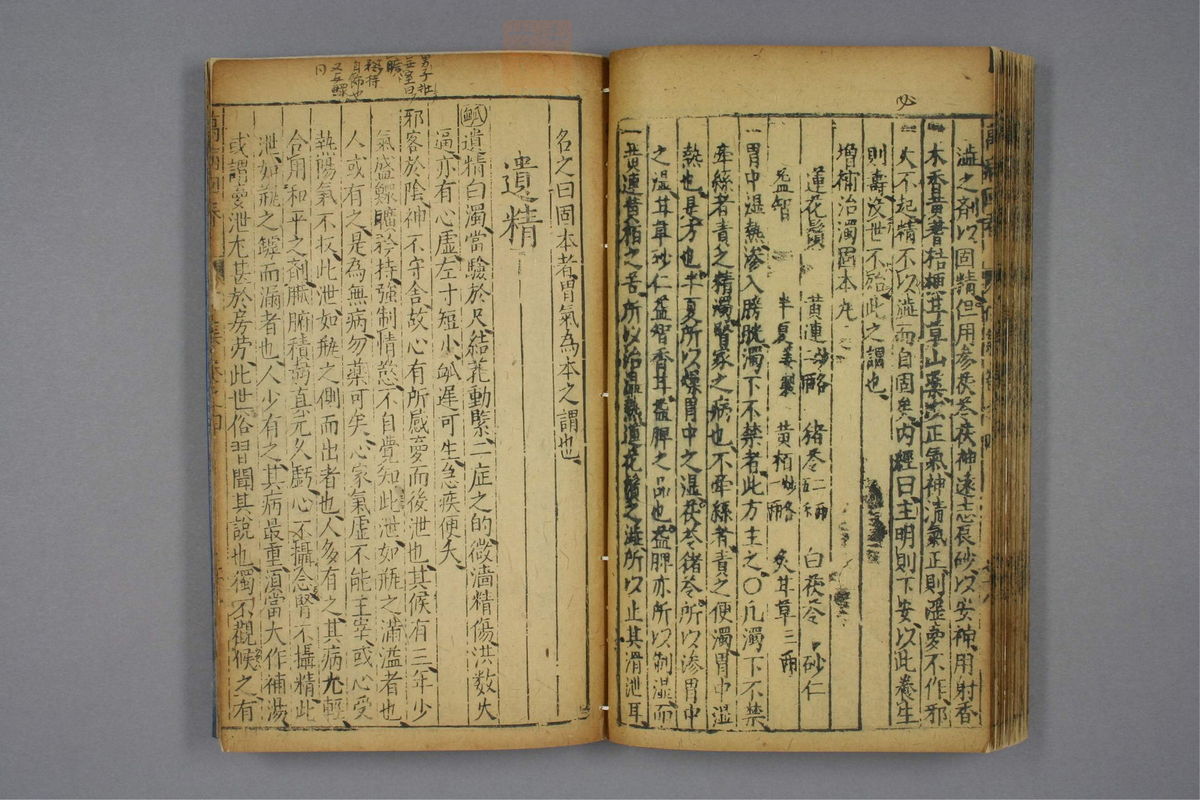 澁之剤以固精但用參茯苓茯神遠志辰砂以安神用射香
木香黃耆桔梗甘草山藥以正氣神清氣正則淫夢不作邪
火不起精不以澁而自固矣內經曰主明則下安以此養生
則壽沒世不殆此之謂也
增補治濁固本丸
蓮花鬚 黃連炒各二兩 猪苓二兩半 白茯苓 砂仁
益智 半夏姜製 黃栢炒各一兩 炙甘草三兩
一胃中濕熱滲入膀胱濁下不禁者此方主之〇凡濁下不禁
牽絲者責之精濁腎家之病也不牽絲者責之便濁胃中濕
熱也是方也半夏所以燥胃中之濕茯苓猪苓所以滲胃中
之濕甘草砂仁益智香甘益脾之品也益脾亦所以制濕而
一黃連黃栢之苦所以治濕熱蓮花鬚之澁所以止其滑泄耳
名之曰固本者胃氣為本之謂也
遺精
(脉)遺精白濁當驗於尺結芤動緊二症之的微濇精傷洪數火
逼亦有心虛左寸短小脉遲可生急疾便失
邪客於陰神不守舍故心有所感夢而後泄也其候有三年少
氣盛鰥曠矜持強制情慾不自覺知此泄如瓶之滿溢者也
人或有之是為無病勿藥可矣心家氣虛不能主宰或心受
熱陽氣不收此泄如瓶之側而出者也人多有之其病尤輕
合用和平之剤臟腑積弱真元久虧心不攝念腎不攝精此
泄如瓶之罅而漏者也人少有之其病最重須當大作補湯
或謂夢泄尤甚於房勞此世俗習聞其說也獨不觀候之有